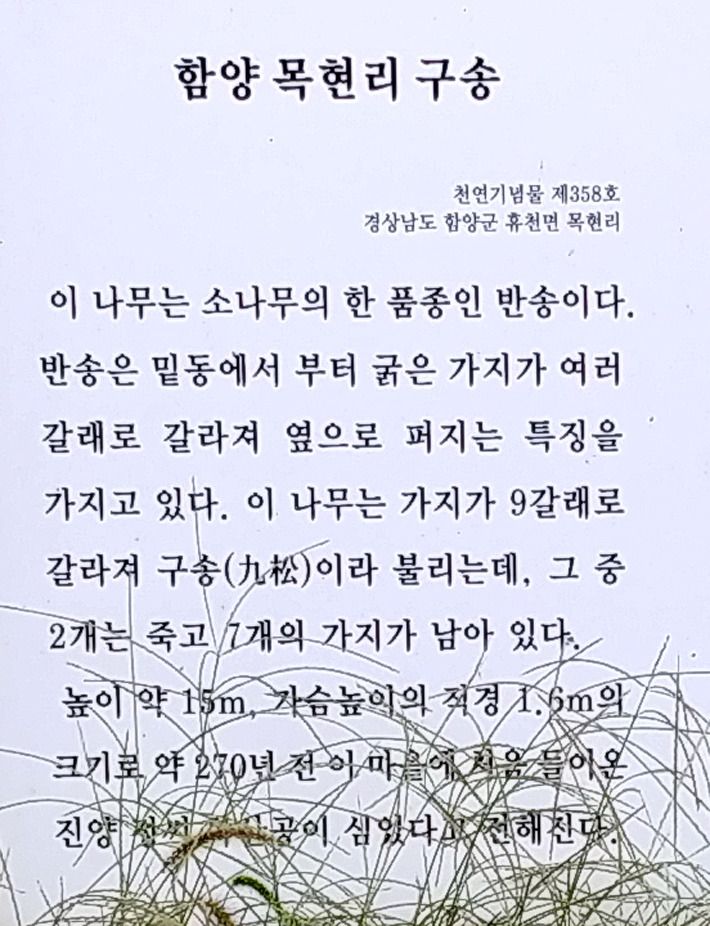 함양 목현리 구송
천연기념물 제358호
경상남도 함양군 휴천면 목현리
이 나무는 소나무의 한 품종인 반송이다.
반송은 밑동에서 부터 굵은 가지가 여러
갈래로 갈라져 옆으로 퍼지는 특징을
가지고 있다. 이 나무는 가지가 9갈래로
갈라져 구송(九松)이라 불리는데, 그 중
2개는 죽고 7개의 가지가 남아 있다.
높이 약 15m, 가슴높이의 직경 1.6m의
크기로 약 270년 전 이 마을에 처음 들어온
진양 심었다고 전해진다.